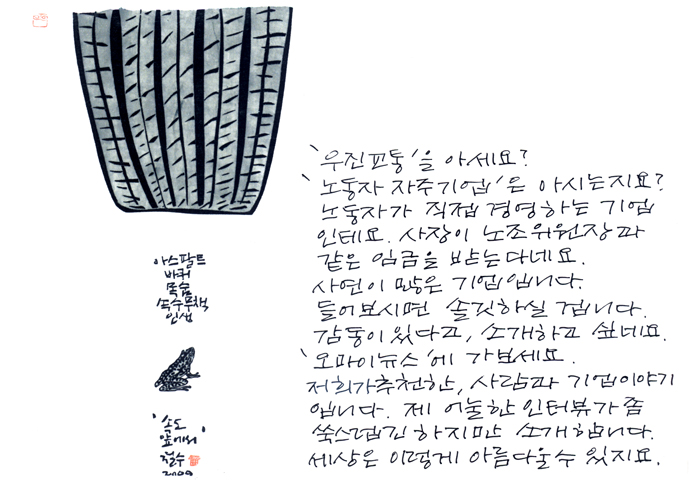 아스팔트
바퀴
목숨
속수무책
인생
'속도
앞에서'
철수
2009
'우진교통'을 아세요?
'노동자 자주기업'은 아시는지요?
노동자가 직접 경영하는 기업
인데요. 사장이 노조위원장과
같은 임금을 받는다네요.
사연이 많은 기업입니다.
들어보시면 솔깃하실 겁니다.
감동이 있다고, 소개하고 싶네요.
'오마이뉴스'에 가보세요.
저희가추천한, 사람과 기업이야기
입니다. 제 어눌한 인터뷰가 좀
쑥스럽긴 하지만 소개합니다.
세상은 이렇게 아름다울 수 있지요.